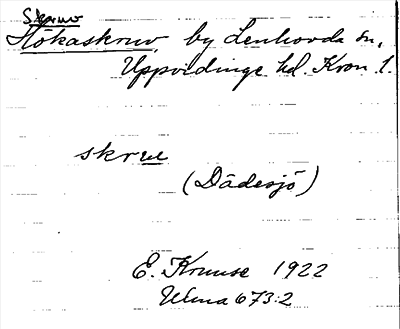 Skruv
Hökaskruv, by Lenhovda sn,
Uppvidinge hd. Kron. l.
skrue
(Dädesjö)
E. Kruuse 1922
Ulma 673:2